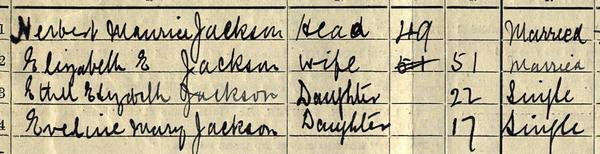 1 Herbert Maurice Jackson Head 49 Married
2 Elizabeth E Jackson Wife 51 Married
3 Ethel Elizabeth Jackson Daughter 22 Single
4 Eveline Mary Jackson Daughter 17 Single